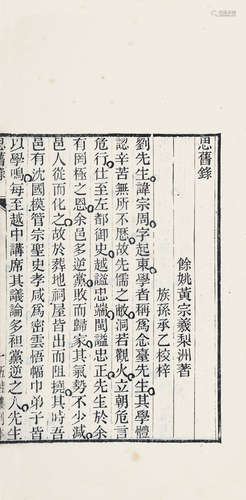 思舊錄
餘姚黃宗羲梨洲著
族孫承乙校梓
劉先生諱宗周字起東學者稱爲念臺先生其學體
認辛苦無所不歷故先儒之敝洞若觀火立朝危言
危行仕至左都御史越謚忠端閩謚忠正先生於余
有罔極之恩余邑多逆黨敗而歸家其氣勢不少減
邑人從而化之故於葬地祠屋皆出而阻撓時吾
邑有沈國模管宗聖史孝咸爲密雲悟幅巾弟子皆
以學鳴每至越中講席其議論多袒黨逆之人先生
思舊錄